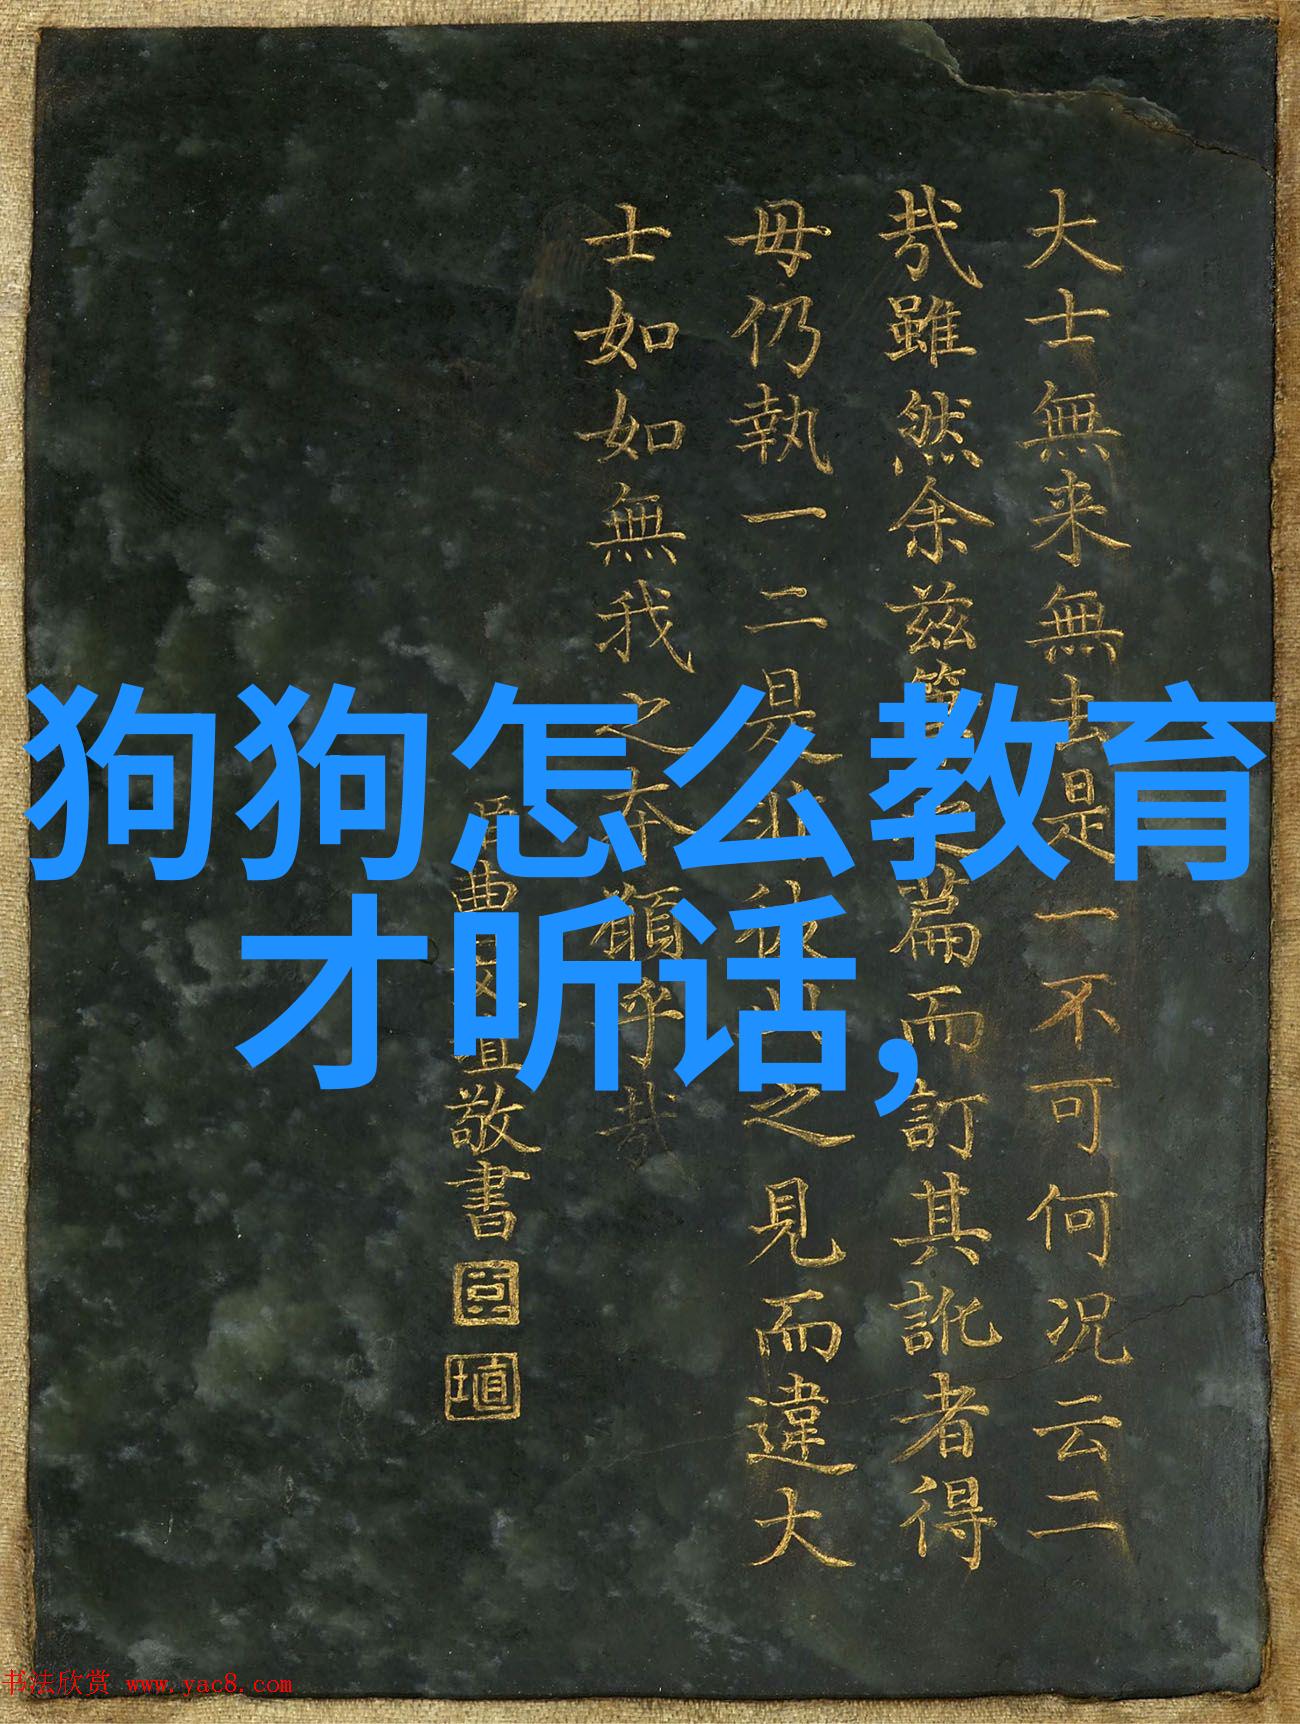 大士無来無去是一不可何况云二
哉雖然余兹篇而訂其訛者得
毋仍執一二是之見而違大
士如如無我之本願乎哉
敬書
狗狗怎么教育
才听话,
书法欣赏 www.yac8.com